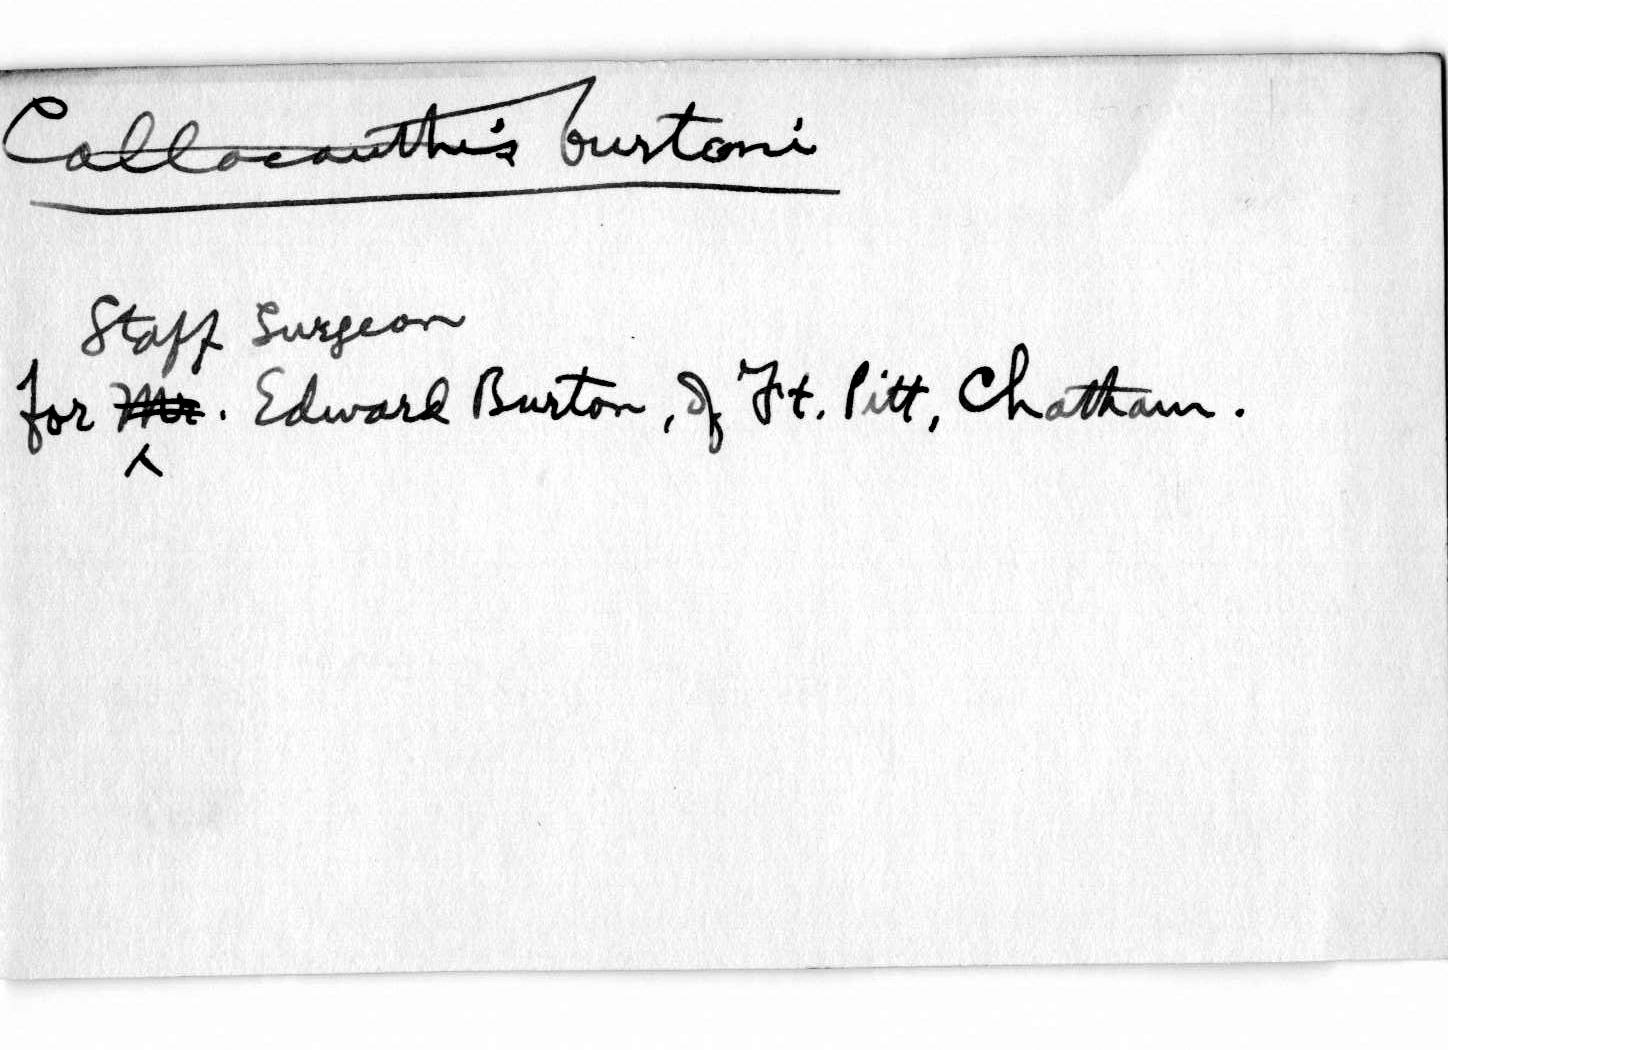 Callacanthis burtoni
Staff Surgeon
for Mr. Edward Burton, of Ft. Pitt, Chatham.